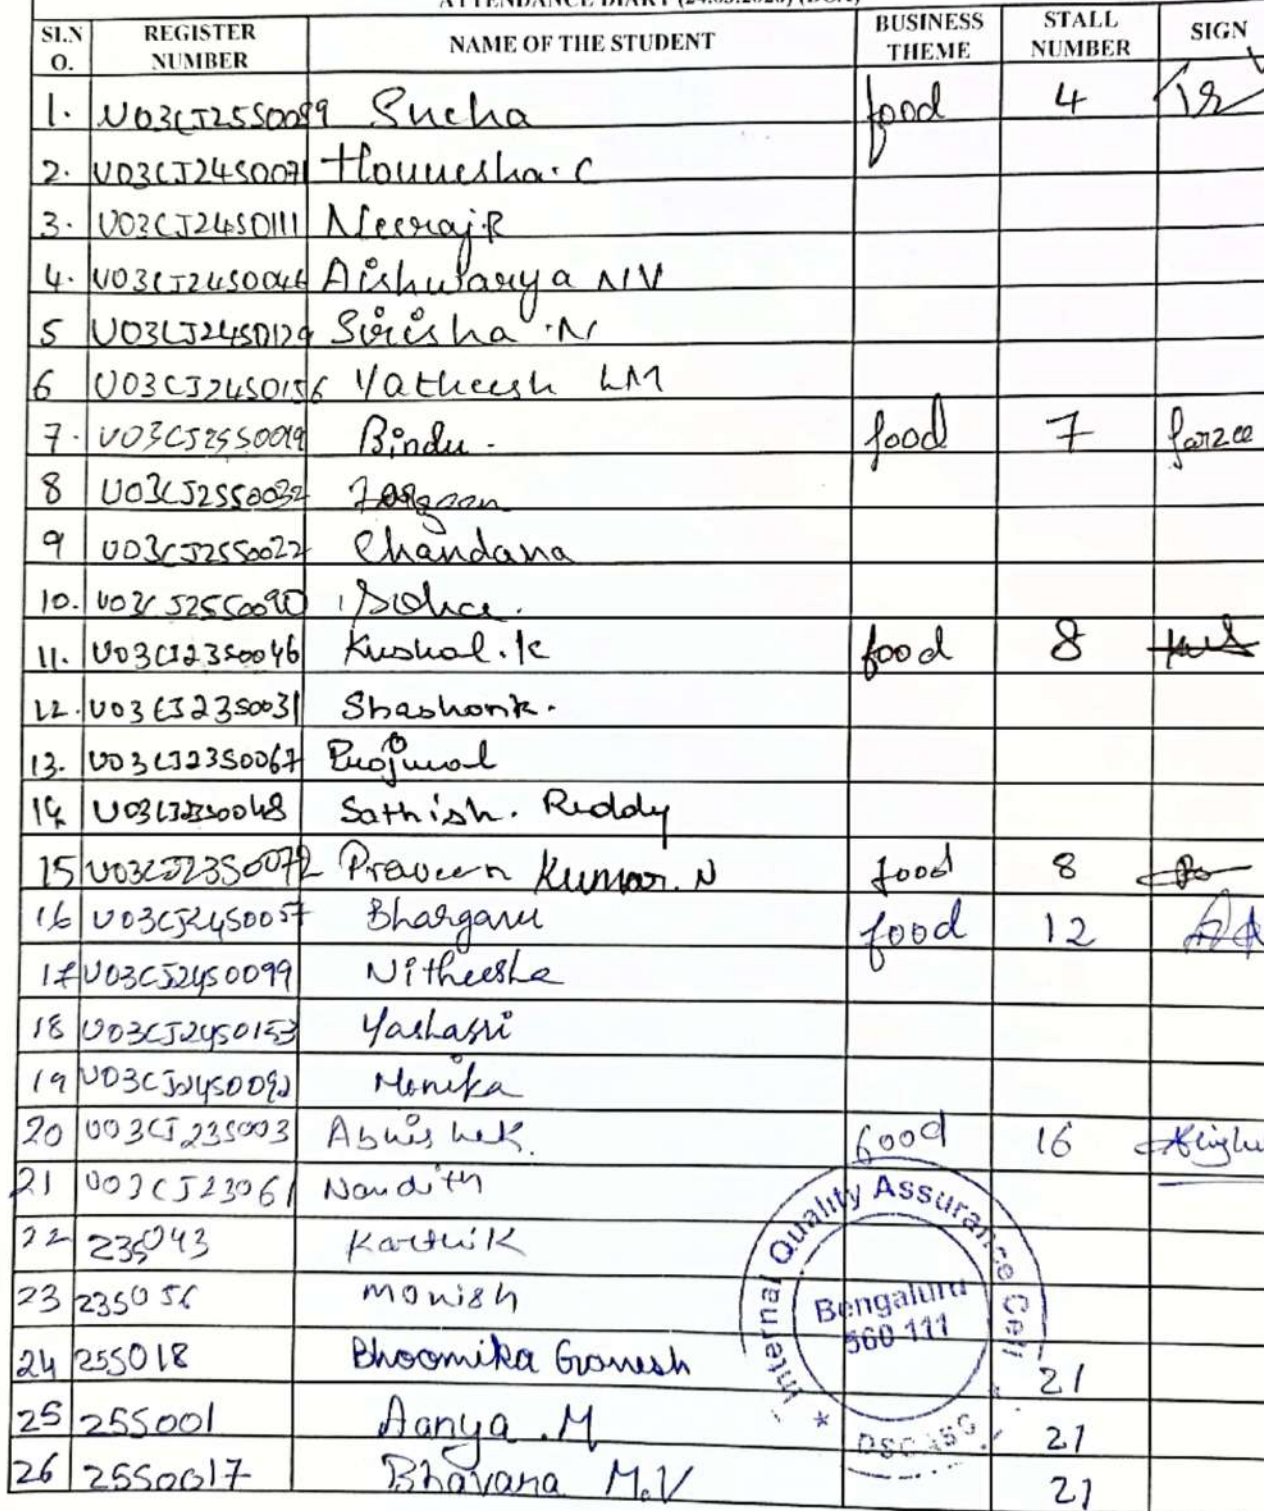 SI.N O. REGISTER NUMBER NAME OF THE STUDENT BUSINESS THEME STALL NUMBER SIGN
1. U03CJ25S0089 Sneha food 4
2. U03CJ24S0071 Hounesha.C
3. U03CJ24S0111 Neeraj.R
4. U03CJ24S0046 Aishwarya NV
5 U03CJ24S0129 Sirisha .N
6 U03CJ24S0156 Yatheesh LM
7. U03CJ25S0019 Bindu. food 7
8 U03CJ25S0032
9 U03CJ25S0022 Chandana
10. U03CJ25S0090
11. U03CJ23S0046 Kushal.K food 8
12. U03CJ23S0031 Shashank.
13. U03CJ23S0067 Prajwal
14 U03CJ23S0048 Sathish. Reddy
15 U03CJ23S0072 Praveen Kumar. N food 8
16 U03CJ24S0057 Bhargavi food 12
17 U03CJ24S0099 Nitheesha
18 U03CJ24S0153 Yashasri
19 U03CJ24S0092 Monika
20 U03CJ23S003 Abhishek. food 16
21 U03CJ23061 Nandith
22 23S043 Karthik
23 23S056 Monish
24 25S018 Bhoomika Ganesh 21
25 25S001 Aanya .M 21
26 25S0017 Bhavana M.V 21
Internal Quality Assurance Cell
Bengaluru
560 111